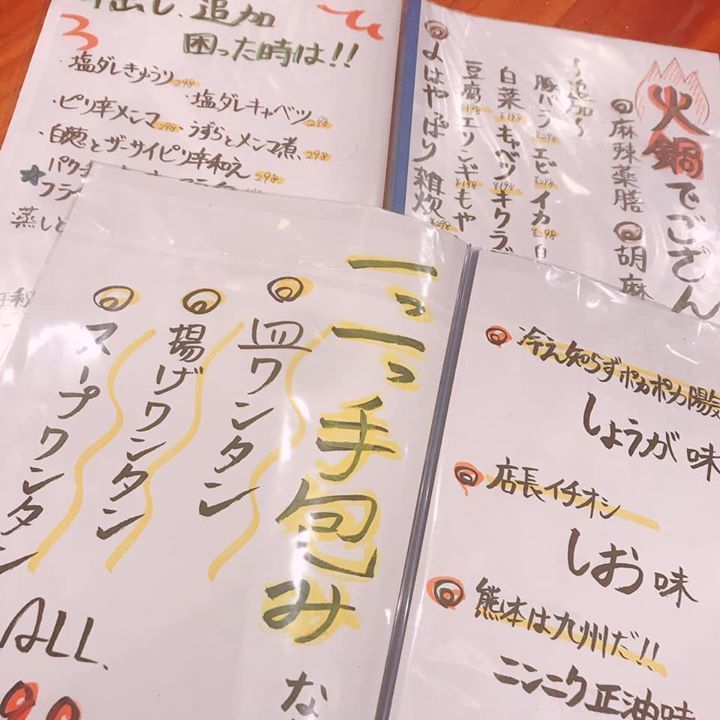 出し、追加
困った時は!!
・塩ダレきゅうり 298
・塩ダレキャベツ 298
・ピリ辛メンマ 298
・うずらとメンマ煮 298
・白葱とザーサイピリ辛和え 298
火鍋でござん
麻辣薬膳
胡麻
〜追加〜
豚バラ エビ イカ 298
白菜 198 キャベツ 198 キクラゲ
豆腐 198 エリンギ 198 もや
よはやっぱり雑炊 298
一つ一つ手包み
皿ワンタン
揚げワンタン
スープワンタン
ALL.
な
冷え知らずポカポカ陽気
しょうが味
店長イチオシ
しお味
熊本は九州だ!!
ニンニク正油味